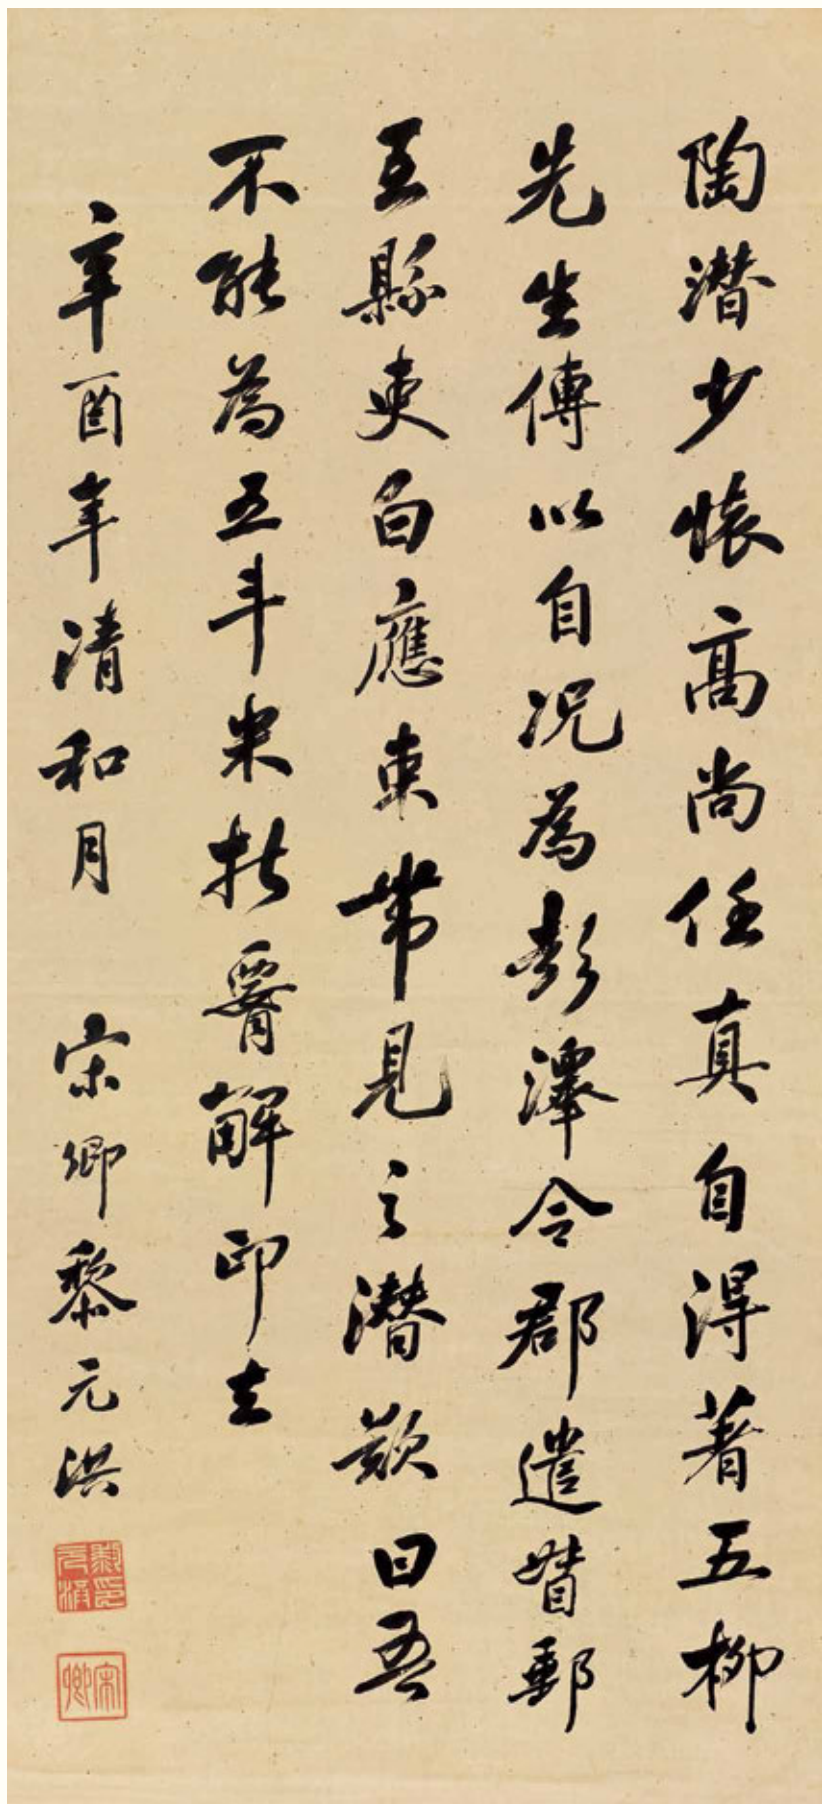 陶潜少懷高尚任真自得著五柳
先生傳以自况為彭澤令郡遣督郵
至縣吏白應束帶見之潜歎曰吾
不能為五斗米折腰解印去
辛酉年清和月 宋卿黎元洪
黎元洪印
宋卿